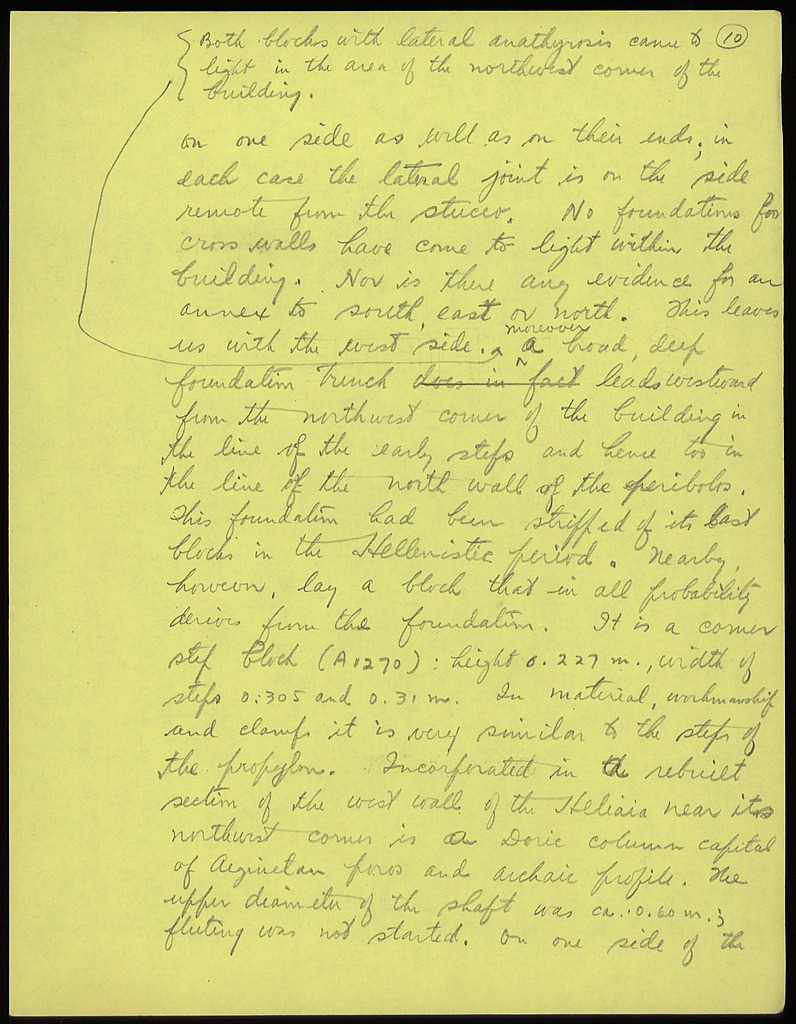 Both blocks with lateral anathyrosis came to 10
light in the area of the northwest corner of the
building.
on one side as well as on their ends; in
each case the lateral joint is on the side
remote from the stucco. No foundations for
cross walls have come to light within the
building. Nor is there any evidence for an
annex to south, east or north. This leaves
us with the west side. moreover
a broad, deep
foundation trench does in fact leads westward
from the northwest corner of the building in
the line of the early steps and hence too in
the line of the north wall of the peribolos.
This foundation had been stripped of its last
blocks in the Hellenistic period. Nearby,
however, lay a block that in all probability
derives from the foundation. It is a corner
step block (A1270): height 0.227 m., width of
steps 0.305 and 0.31 m. In material, workmanship
and clamps it is very similar to the steps of
the propylon. Incorporated in a rebuilt
section of the west wall of the Heliaia near its
northwest corner is a Doric column capital
of Aeginetan poros and archaic profile. The
upper diameter of the shaft was ca. 0.60 m.;
fluting was not started. On one side of the